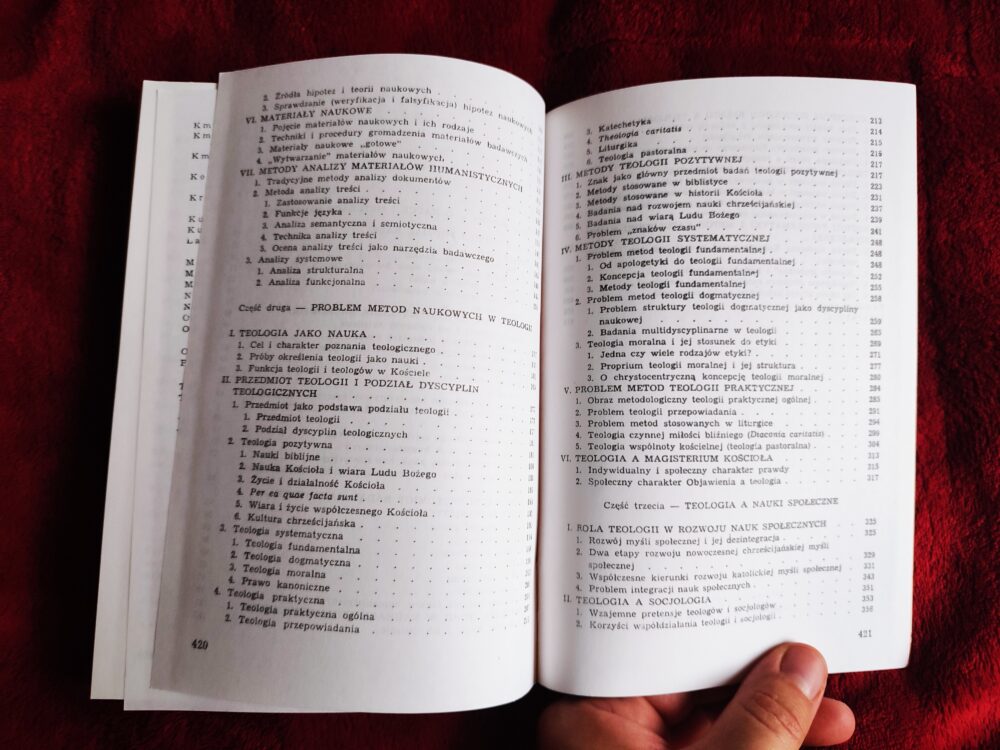 Km
Km
Km
Ko
Kr
Ku
Ku
La
M
M
M
N
N
O
O
2. Źródła hipotez i teorii naukowych
3. Sprawdzanie (weryfikacja i falsyfikacja) hipotez naukowych
VI. MATERIAŁY NAUKOWE
1. Pojęcie materiałów naukowych i ich rodzaje
2. Techniki i procedury gromadzenia materiałów badawczych
3. Materiały naukowe „gotowe”
4. „Wytwarzanie” materiałów naukowych
VII. METODY ANALIZY MATERIAŁÓW HUMANISTYCZNYCH
1. Tradycyjne metody analizy dokumentów
2. Metoda analizy treści
1. Zastosowanie analizy treści
2. Funkcje języka
3. Analiza semantyczna i semiotyczna
4. Technika analizy treści
5. Ocena analizy treści jako narzędzia badawczego
3. Analizy systemowe
1. Analiza strukturalna
2. Analiza funkcjonalna
Część druga — PROBLEM METOD NAUKOWYCH W TEOLOGII
I. TEOLOGIA JAKO NAUKA
1. Cel i charakter poznania teologicznego
2. Próby określenia teologii jako nauki
3. Funkcja teologii i teologów w Kościele
II. PRZEDMIOT TEOLOGII I PODZIAŁ DYSCYPLIN
TEOLOGICZNYCH
1. Przedmiot jako podstawa podziału teologii
1. Przedmiot teologii
2. Podział dyscyplin teologicznych
2. Teologia pozytywna
1. Nauki biblijne
2. Nauka Kościoła i wiara Ludu Bożego
3. Życie i działalność Kościoła
4. Per ea quae facta sunt
5. Wiara i życie współczesnego Kościoła
6. Kultura chrześcijańska
3. Teologia systematyczna
1. Teologia fundamentalna
2. Teologia dogmatyczna
3. Teologia moralna
4. Prawo kanoniczne
4. Teologia praktyczna
1. Teologia praktyczna ogólna
2. Teologia przepowiadania
420
3. Katechetyka 212
4. Theologia caritatis 214
5. Liturgika 215
6. Teologia pastoralna 216
III. METODY TEOLOGII POZYTYWNEJ 217
1. Znak jako główny przedmiot badań teologii pozytywnej 217
2. Metody stosowane w biblistyce 223
3. Metody stosowane w historii Kościoła 231
4. Badania nad rozwojem nauki chrześcijańskiej 237
5. Badania nad wiarą Ludu Bożego 239
6. Problem „znaków czasu” 241
IV. METODY TEOLOGII SYSTEMATYCZNEJ 248
1. Problem metod teologii fundamentalnej 248
1. Od apologetyki do teologii fundamentalnej 248
2. Koncepcja teologii fundamentalnej 252
3. Metody teologii fundamentalnej 255
2. Problem metod teologii dogmatycznej 258
1. Problem struktury teologii dogmatycznej jako dyscypliny
naukowej 259
2. Badania multidyscyplinarne w teologii 265
3. Teologia moralna i jej stosunek do etyki 269
1. Jedna czy wiele rodzajów etyki? 271
2. Proprium teologii moralnej i jej struktura 277
3. O chrystocentryczną koncepcję teologii moralnej 280
V. PROBLEM METOD TEOLOGII PRAKTYCZNEJ 284
1. Obraz metodologiczny teologii praktycznej ogólnej 285
2. Problem teologii przepowiadania 291
3. Problem metod stosowanych w liturgice 294
4. Teologia czynnej miłości bliźniego (Diaconia caritatis) 299
5. Teologia wspólnoty kościelnej (teologia pastoralna) 304
VI. TEOLOGIA A MAGISTERIUM KOŚCIOŁA 313
1. Indywidualny i społeczny charakter prawdy 315
2. Społeczny charakter Objawienia a teologia 317
Część trzecia — TEOLOGIA A NAUKI SPOŁECZNE
I. ROLA TEOLOGII W ROZWOJU NAUK SPOŁECZNYCH 325
1. Rozwój myśli społecznej i jej dezintegracja 325
2. Dwa etapy rozwoju nowoczesnej chrześcijańskiej myśli
społecznej 329
3. Współczesne kierunki rozwoju katolickiej myśli społecznej 331
4. Problem integracji nauk społecznych 343
II. TEOLOGIA A SOCJOLOGIA 353
1. Wzajemne pretensje teologów i socjologów 356
2. Korzyści współdziałania teologii i socjologii
421